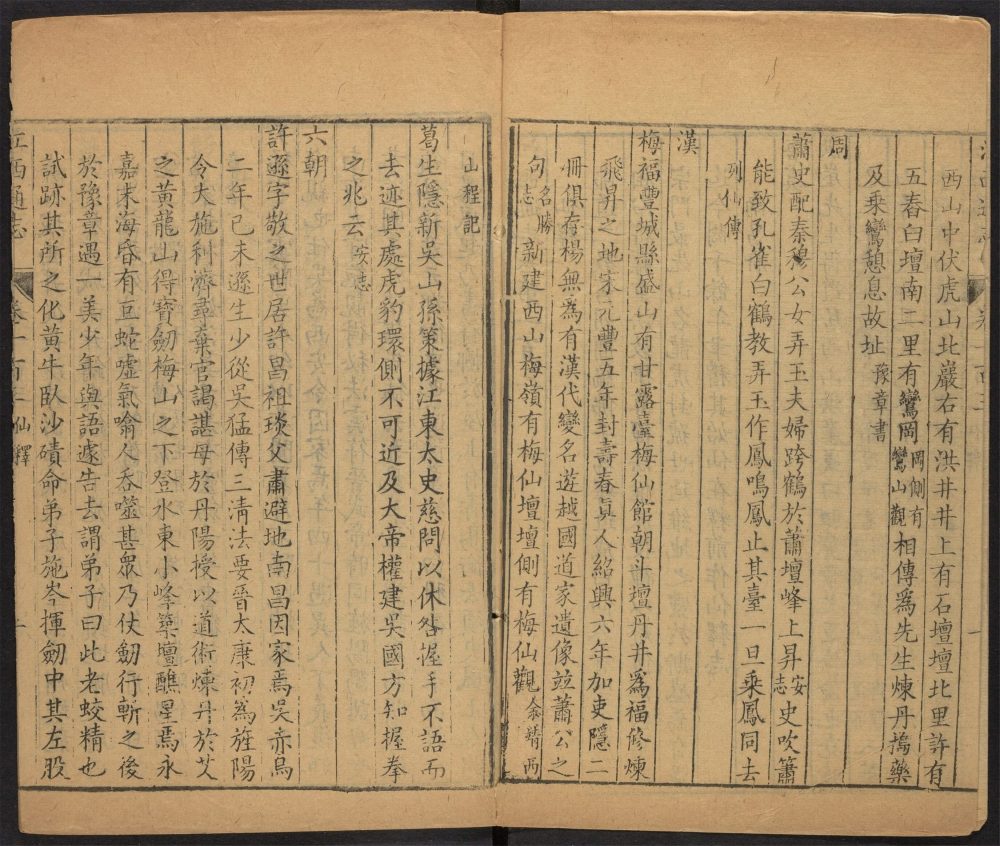 西山中伏虎山北巖右有洪井井上有石壇壇北里許有
五春臼壇南二里有鸞岡岡側有鸞山觀相傳爲先生煉丹搗藥
及乘鸞憩息故址豫章書
周
蕭史配秦穆公女弄玉夫婦跨鶴於蕭壇峰上昇安志史吹簫
能致孔雀白鶴教弄玉作鳳鳴鳳止其臺一旦乘鳳同去
列仙傳
漢
梅福豐城縣盛山有甘露臺梅仙館朝斗壇丹井爲福修煉
飛昇之地宋元豐五年封壽春眞人紹興六年加吏隱二
冊俱存楊無爲有漢代變名遊越國道家遺像竝蕭公之
句名勝志新建西山梅嶺有梅仙壇壇側有梅仙觀余靖西
山程記
葛生隱新吳山孫策據江東太史慈問以休咎握手不語而
去迹其處虎豹環側不可近及大帝權建吳國方知握拳
之兆云安志
六朝
許遜字敬之世居許昌祖琰父肅避地南昌因家焉吳赤烏
二年己未遜生少從吳猛傳三清法要晉太康初爲旌陽
令大施利濟尋棄官謁諶母於丹陽授以道術煉丹於艾
之黃龍山得寶劒梅山之下登水東小峰築壇醮星焉永
嘉末海昏有巨蛇噓氣喻人吞噬甚眾乃仗劒行斬之後
於豫章遇一美少年與語遽告去謂弟子曰此老蛟精也
試跡其所之化黃牛臥沙磧命弟子施岑揮劒中其左股
江西通志 卷一百三 仙釋